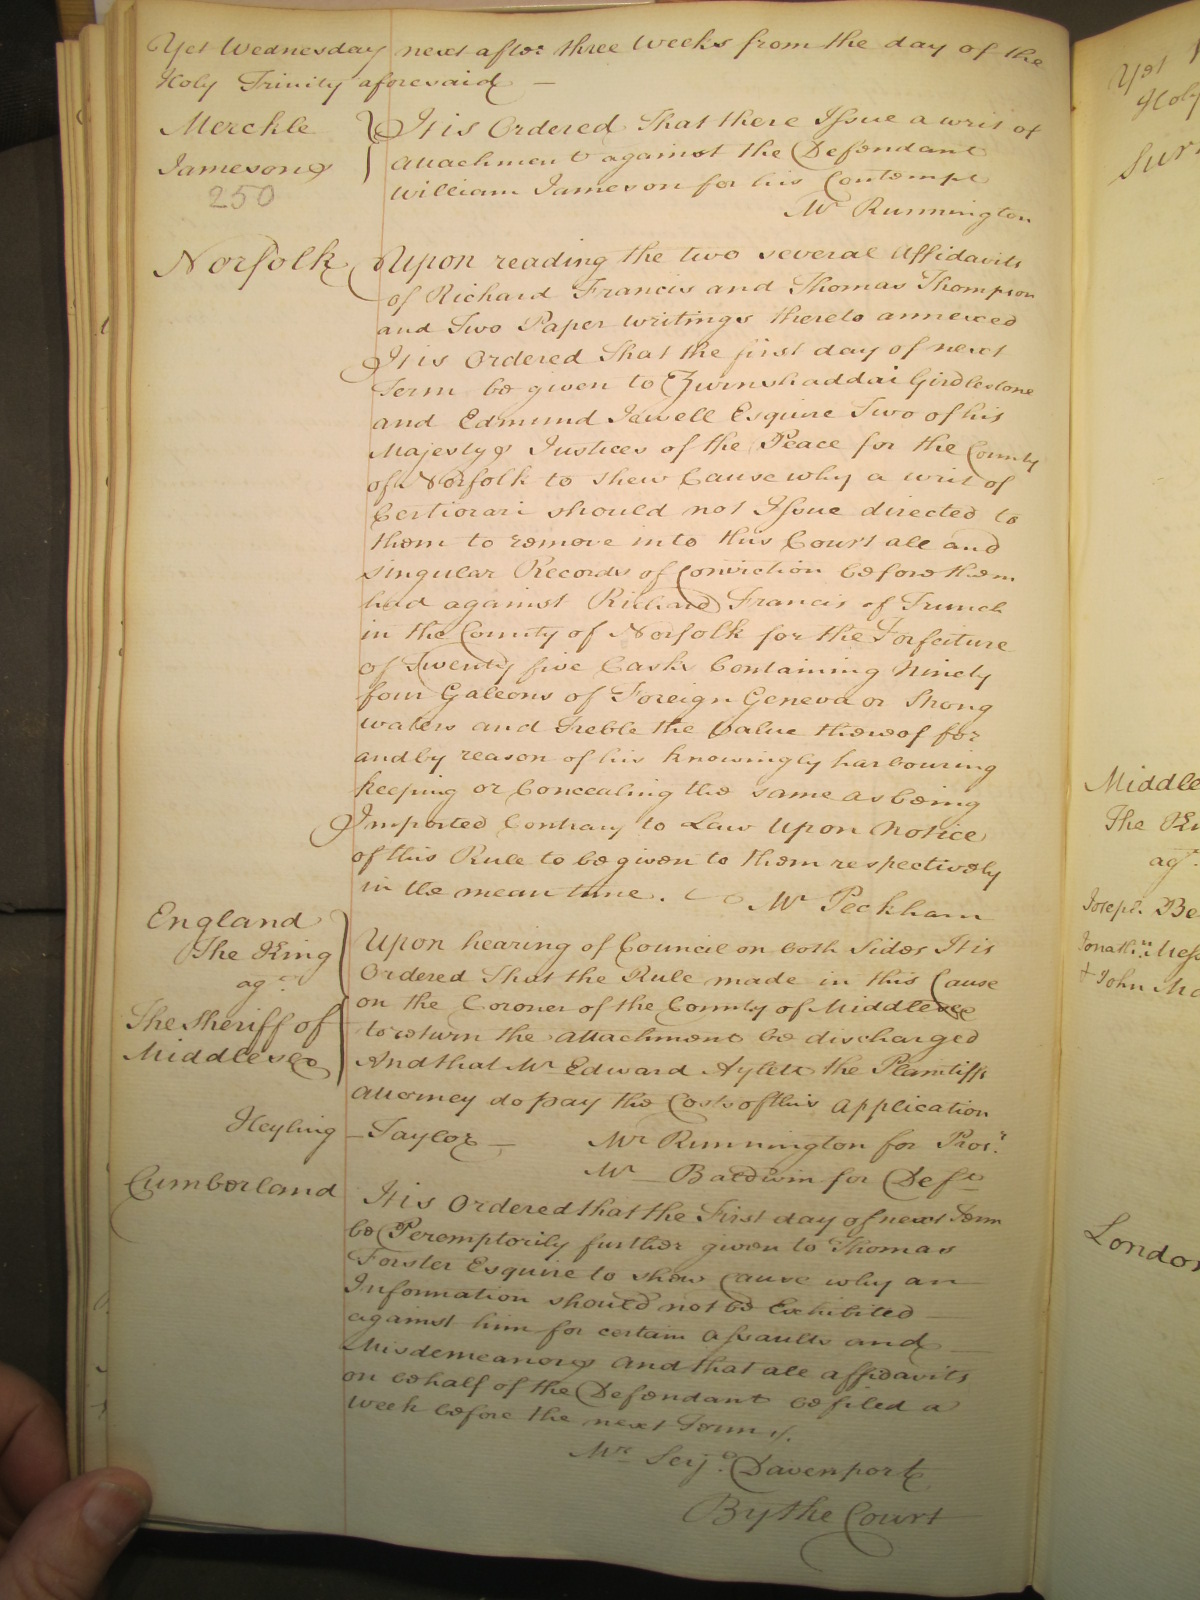 Yet Wednesday next after three weeks from the day of the
Holy Trinity aforesaid —
Merckle
Jameson
250
It is Ordered That there Issue a writ of
attachment against the Defendant
William Jameson for his Contempt
Mr Runnington
Norfolk
Upon reading the two several affidavits
of Richard Francis and Thomas Thompson
and Two Paper writings thereto annexed
It is Ordered That the first day of next
Term be given to Zurishaddai Girdlestone
and Edmund Jewell Esquire Two of his
Majestys Justices of the Peace for the County
of Norfolk to shew Cause why a writ of
Certiorari should not Issue directed to
them to remove into this Court all and
singular Records of Conviction before them
had against Richard Francis of Trunch
in the County of Norfolk for the Forfeiture
of Twenty five Casks Containing Ninety
four Gallons of Foreign Geneva or Strong
waters and Treble the Value thereof for
and by reason of his knowingly harbouring
keeping or Concealing the same as being
Imported Contrary to Law Upon Notice
of this Rule to be given to them respectively
in the mean time.
Mr Peckham
England
The King
agt
The Sheriff of
Middlesex
Upon hearing of Council on both Sides It is
Ordered That the Rule made in this Cause
on the Coroner of the County of Middlesex
to return the attachment be discharged
And that Mr Edward Aylett the Plaintiffs
attorney do pay the Costs of this application
Heyling — Taylor —
Mr Runnington for Pros.r
Mr Baldwin for Deft
Cumberland
It is Ordered that the First day of next Term
be Peremptorily further given to Thomas
Forster Esquire to shew Cause why an
Information should not be Exhibited
against him for certain assaults and
Misdemeanors and that all affidavits
on behalf of the Defendant be filed a
week before the next Term
Mr Serjt Davenport
By the Court
Yet
Holy
Surr
Middle
The Ki
agt.
Joseph Be
Jonath.n Mess
& John Mc
London